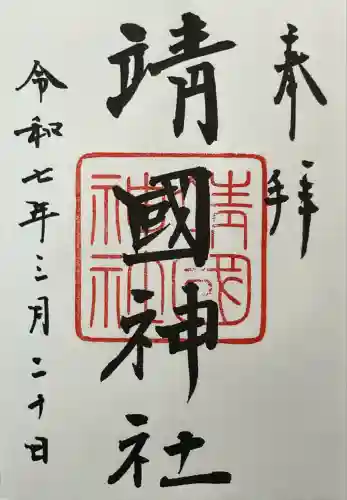 奉拝
靖國神社
令和七年三月二十日
靖國
神社